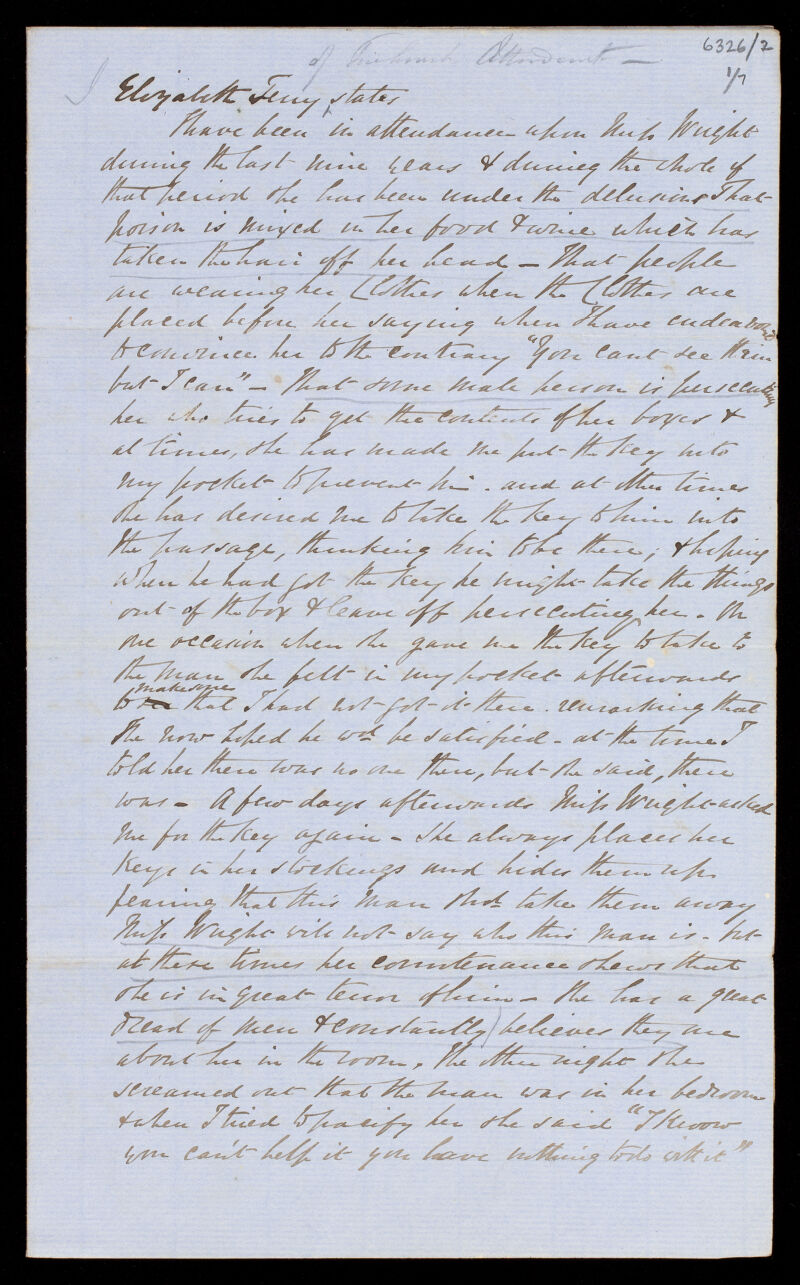 6326/2
1/7
of Ticehurst Attendant —
Elizabeth Terry states
I have been in attendance upon Miss Wright
during the last nine years & during the whole of
that period she has been under the delusions That
poison is mixed in her food & wine which has
taken the hair off her head — That people
are wearing her Clothes when the Clothes are
placed before her saying when I have endeavored
to convince her to the contrary "You cant see them
but I can" — That some male person is persecuting
her who tries to get the contents of her boxes &
at times, she has made me put the key into
my pocket to prevent him . and at other times
she has desired me to take the key to him into
the passage, thinking him to be there, & hoping
when he had got the key he might take the things
out of the box & leave off persecuting her . On
one occasion when she gave me the key to take to
the man she felt in my pocket afterwards
to make sure that I had not got it there . remarking that
she now hoped he wd be satisfied — at the time I
told her there was no one there, but she said, there
was — A few days afterwards Miss Wright asked
me for the key again — She always places her
keys in her stockings and hides them up
fearing that this man shd take them away
Miss Wright will not say who this man is — but
at these times her countenance shews that
she is in great terror of him — She has a great
dread of men & constantly believes they are
about her in the room . The other night she
screamed out that the man was in her bedroom
& when I tried to pacify her she said "I know
you can't help it you have nothing to do with it"